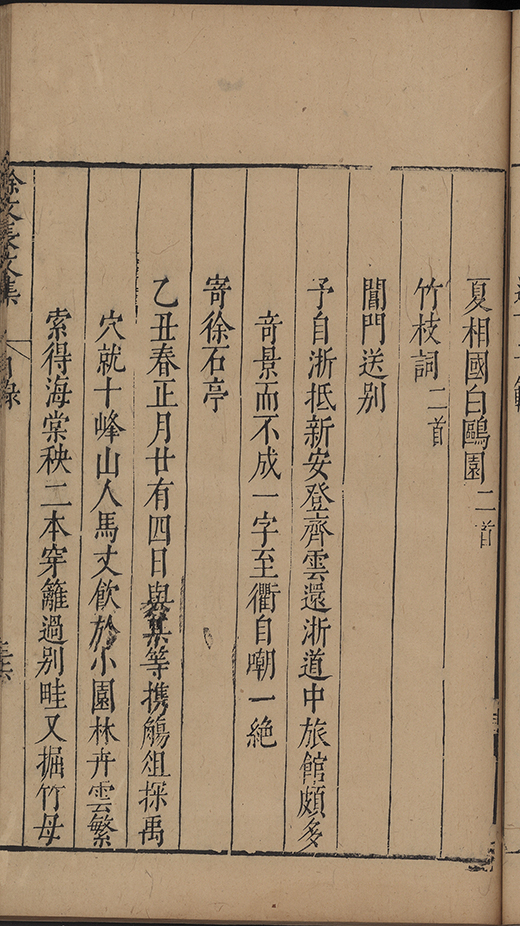 夏相國白鷗園二首
竹枝詞二首
閶門送别
予自浙抵新安登齊雲還浙道中旅館頗多
竒景而不成一字至衢自嘲一絶
寄徐石亭
乙丑春正月廿有四日與某等携觴俎探禹
穴就十峰山人馬丈飲於小園林卉雲繁
索得海棠秧二本穿籬過别畦又掘竹母
徐文長文集
目録